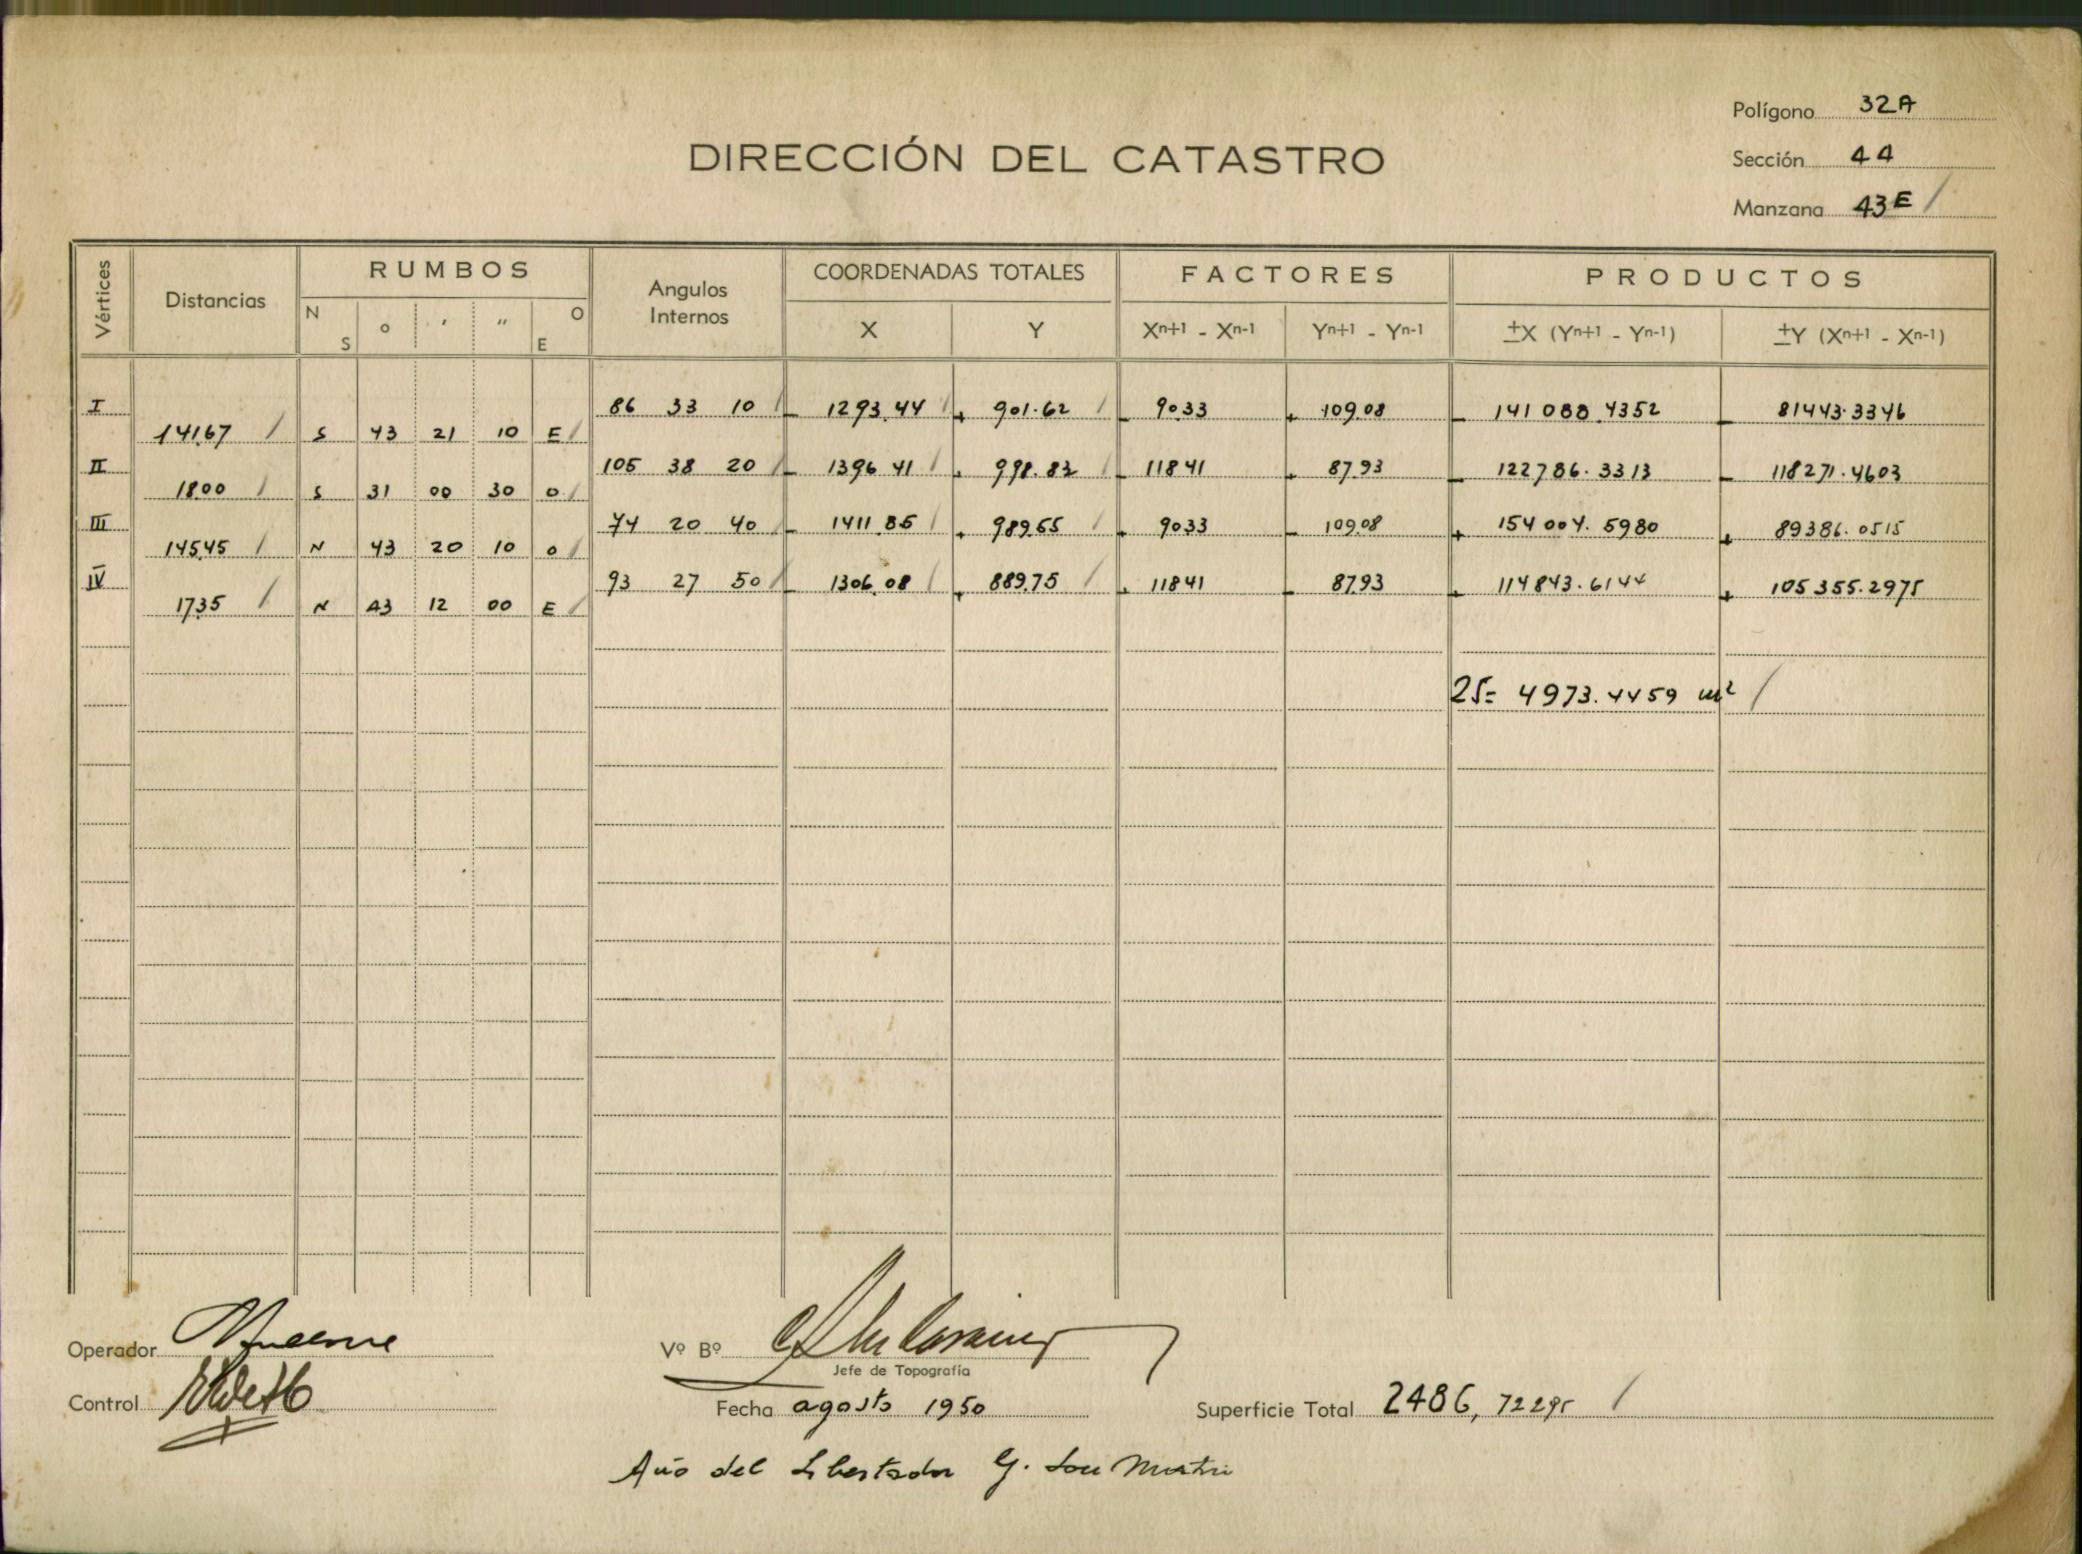 Polígono 32A
DIRECCIÓN DEL CATASTRO
Sección 44
Manzana 43E /
Vértices
Distancias
RUMBOS
N S ° ' " O E
Angulos
Internos
COORDENADAS TOTALES
X Y
FACTORES
Xn+1 - Xn-1 Yn+1 - Yn-1
PRODUCTOS
±X (Yn+1 - Yn-1) ±Y (Xn+1 - Xn-1)
I 86 33 10 / - 1293.44 / + 901.62 / - 90.33 + 109.08 - 141088.4352 - 81443.3346
141.67 / S 43 21 10 E /
II 105 38 20 / - 1396.41 / + 998.83 / - 118.41 + 87.93 - 122786.3313 - 118271.4603
18.00 / S 31 00 30 O /
III 74 20 40 / - 1411.85 / + 989.55 / + 90.33 - 109.08 + 154004.5980 + 89386.0515
145.45 / N 43 20 10 O /
IV 93 27 50 / - 1306.08 / + 889.75 / + 118.41 - 87.93 + 114843.6144 + 105355.2975
17.35 / N 43 12 00 E /
2S= 4973.4459 m² /
Operador
Vº Bº
Jefe de Topografía
Control
Fecha agosto 1950
Superficie Total 2486, 72295 /
Año del Libertador G. San Martin